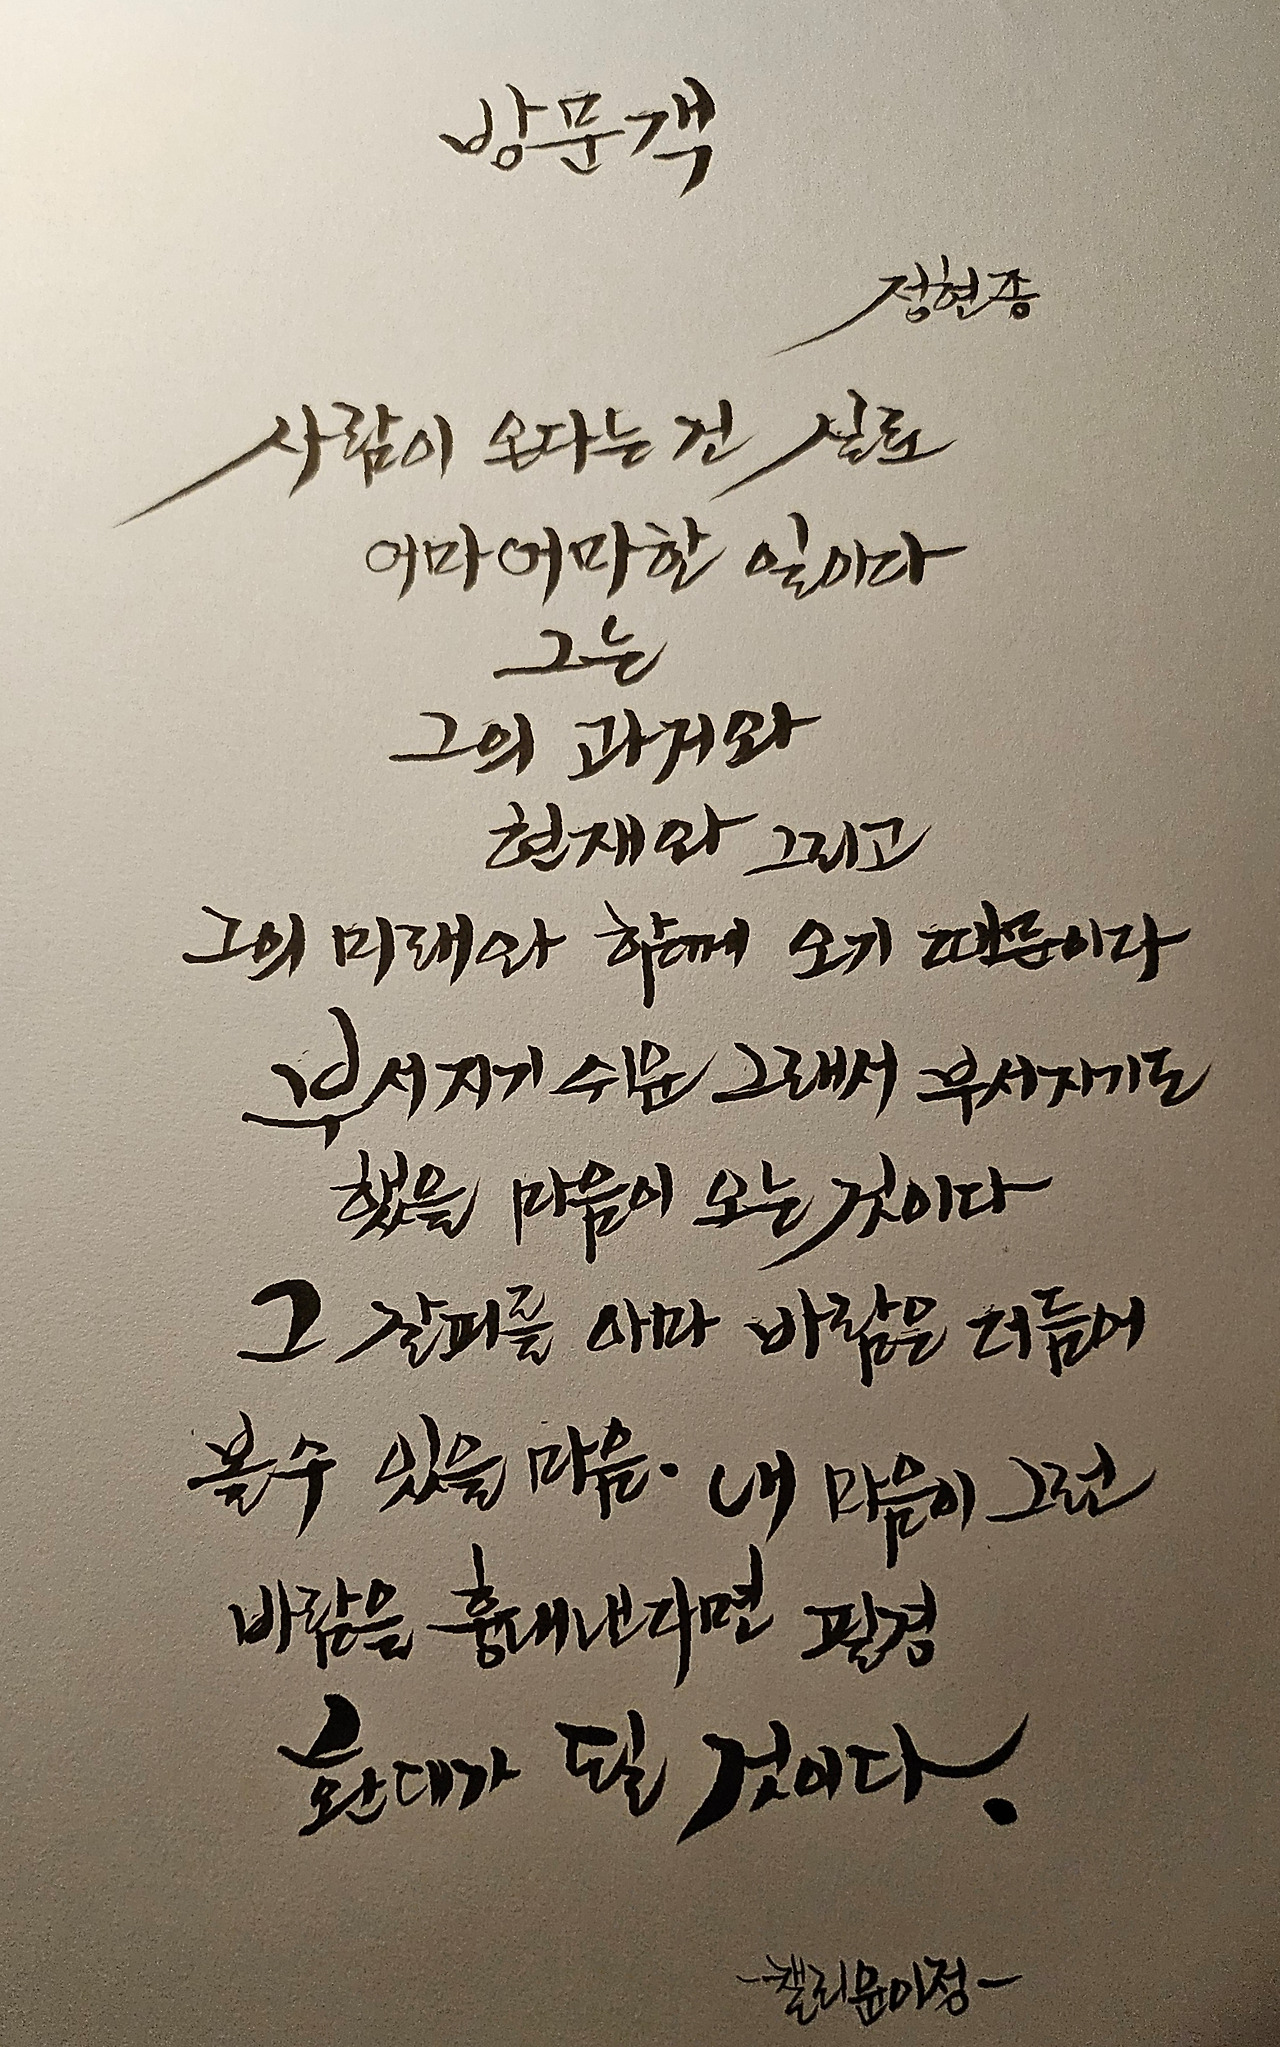 방문객
정현종
사람이 오다는 건 실로
어마어마한 일이다
그는
그의 과거와
현재와 그리고
그의 미래와 함께 오기 때문이다
부서지기 쉬운 그래서 부서지기도
했을 마음이 오는 것이다
그 갈피를 아마 바람은 더듬어
볼수 있을 마음. 내 마음이 그런
바람을 흉내낸다면 필경
환대가 될 것이다.
-캘리윤이정-